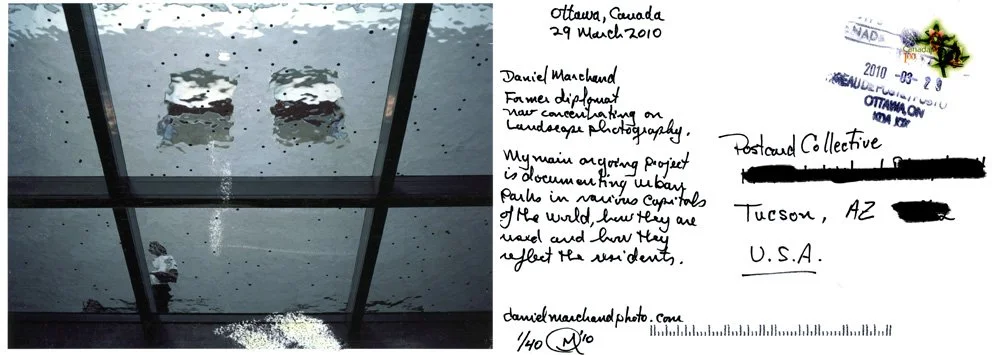 Ottawa, Canada
29 March 2010
Daniel Marchand
Former diplomat
now concentrating on
Landscape photography.
My main ongoing project
is documenting urban
Parks in various capitals
of the world, how they are
used and how they
reflect the residents.
danielmarchandphoto.com
1/40 M '10
Canada
2010 -03- 29
OTTAWA, ON
Postcard Collective
Tucson, AZ
U.S.A.